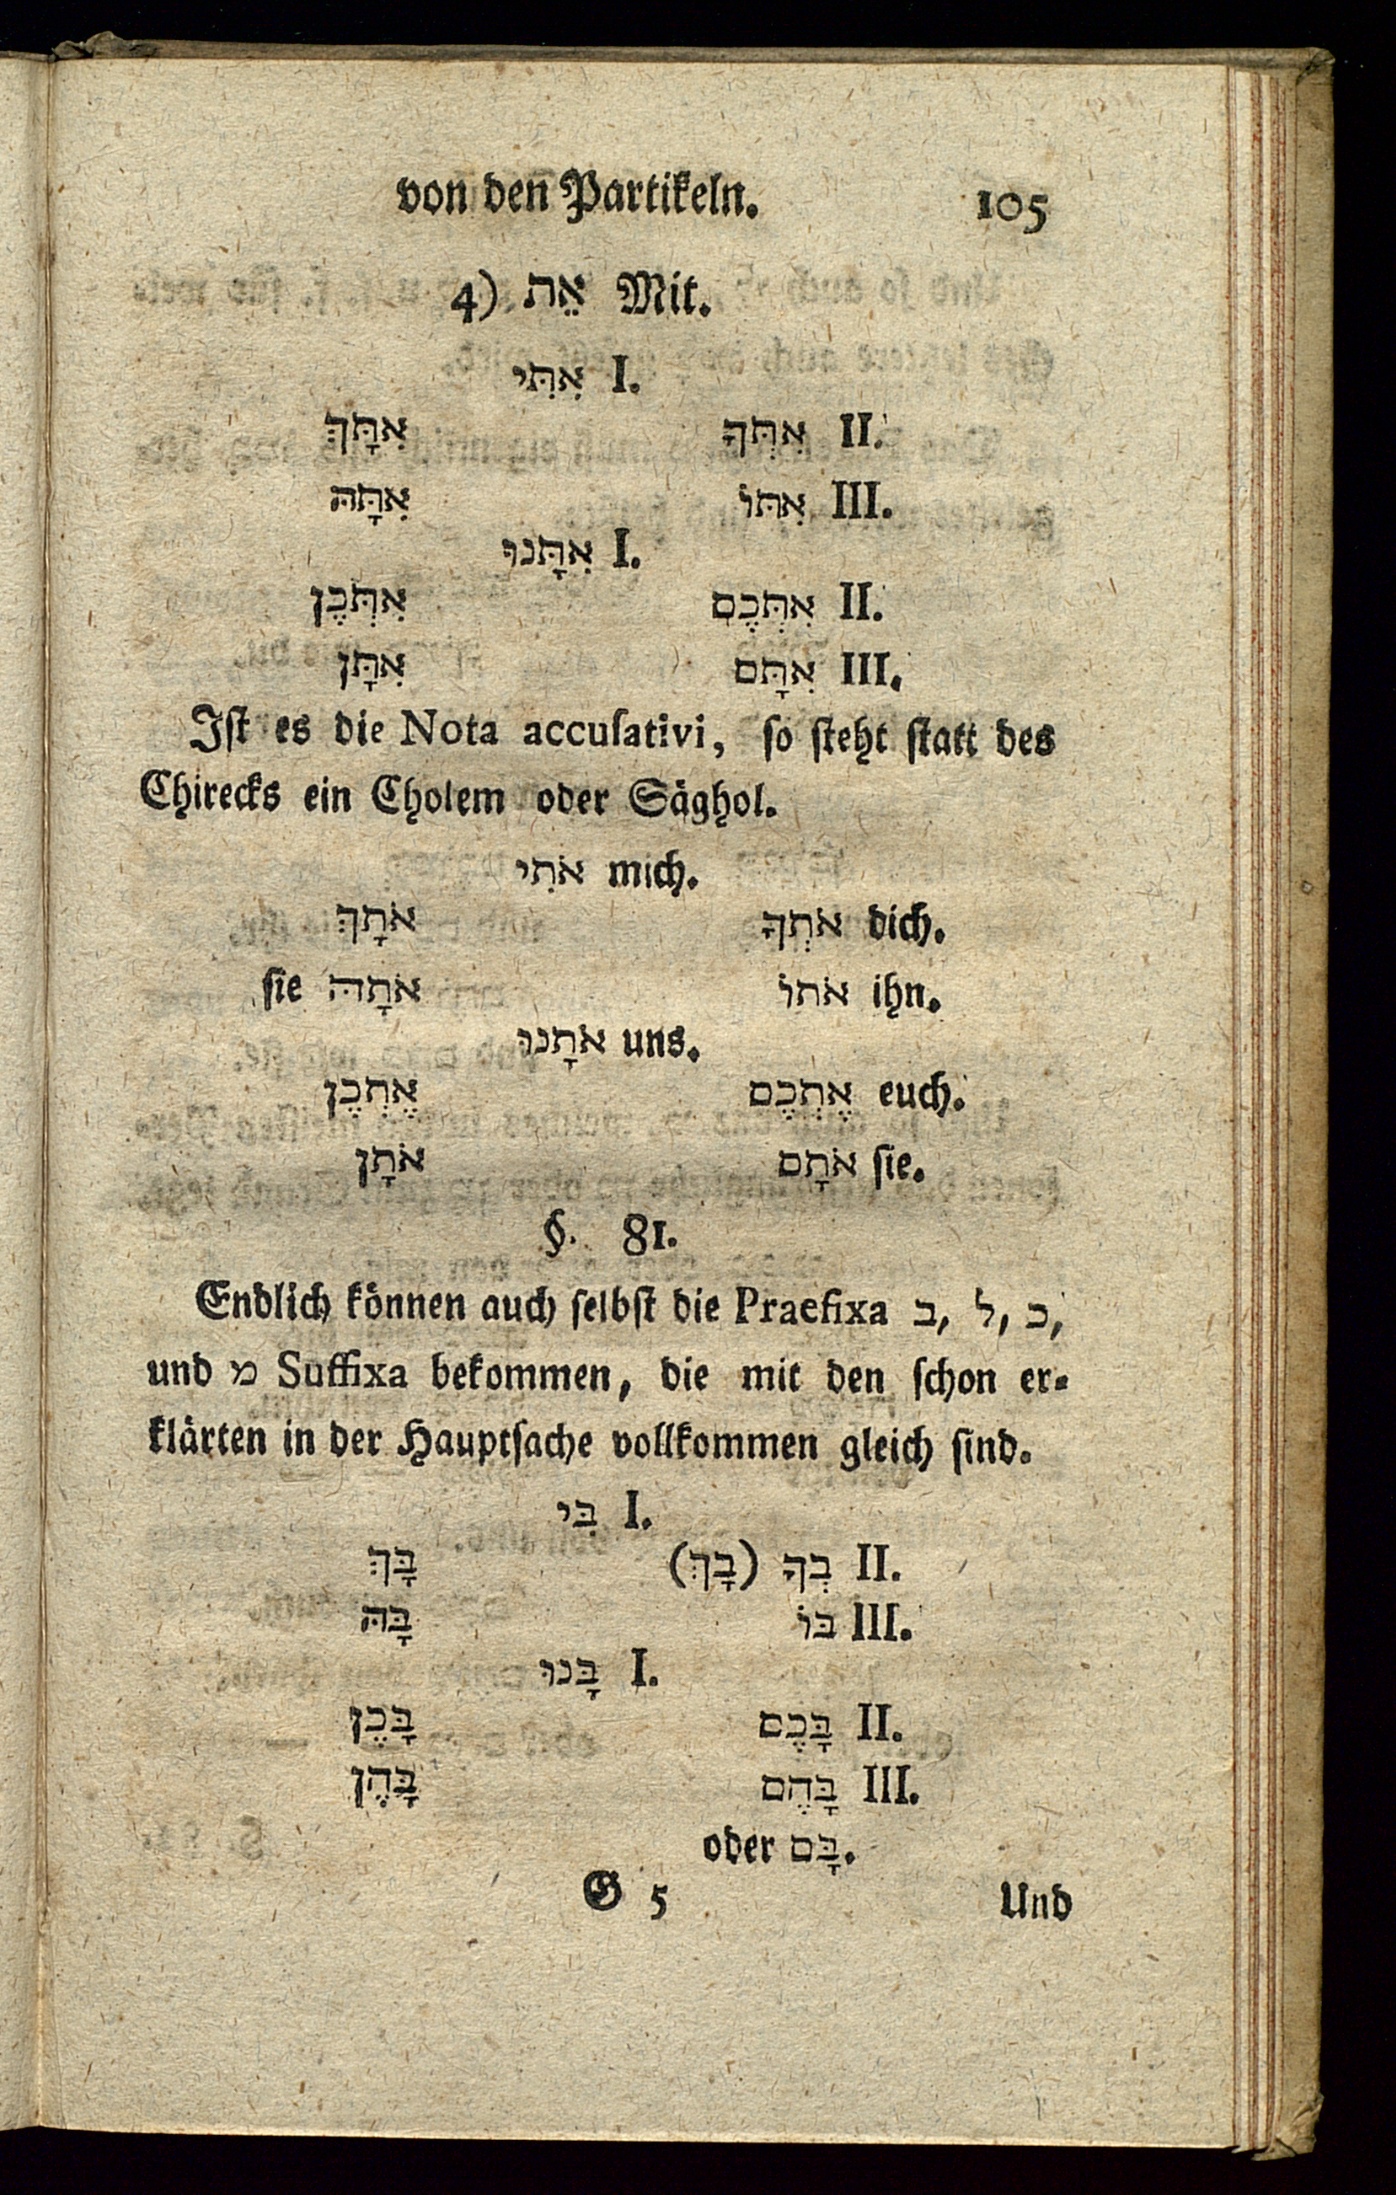 von den Partikeln. 105
4) אֵת Mit.
אִתִּי I.
אִתָּךְ אִתְּךָ II.
אִתָּהּ אִתּוֹ III.
אִתָּנוּ I.
אִתְּכֶן אִתְּכֶם II.
אִתָּן אִתָּם III.
Iſt es die Nota accuſativi, ſo ſteht ſtatt des
Chirecks ein Cholem oder Säghol.
אֹתִי mich.
אֹתָךְ אֹתְךָ dich.
ſie אֹתָהּ אֹתוֹ ihn.
אֹתָנוּ uns.
אֶתְכֶן אֶתְכֶם euch.
אֹתָן אֹתָם ſie.
§. 81.
Endlich können auch ſelbſt die Praefixa ב, ל, כ,
und מ Suffixa bekommen, die mit den ſchon er⸗
klärten in der Hauptſache vollkommen gleich ſind.
בִּי I.
בָּךְ (בָךְ) בְךָ II.
בָּהּ בּוֹ III.
בָּנוּ I.
בָּכֶן בָּכֶם II.
בָּהֶן בָּהֶם III.
oder בָּם.
G 5 Und